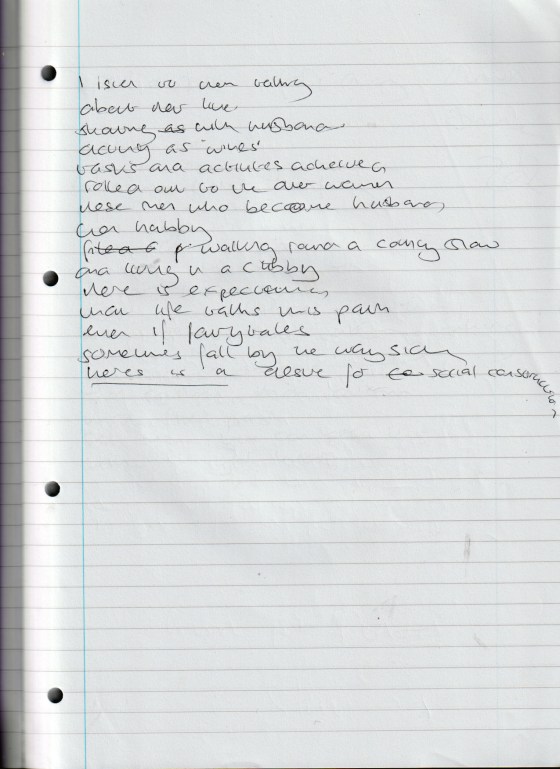 I listen to them talking
about their lives
sharing as with husbands
acting as 'wives'
tasks and activities achieved,
rolled out to the other women
these men who become husbands,
their hubby
walking round a country show
and living in a cubby
there is expectation,
that life takes this path
even if fairytales
sometimes fall by the wayside
theres is a desire for social conservatism?